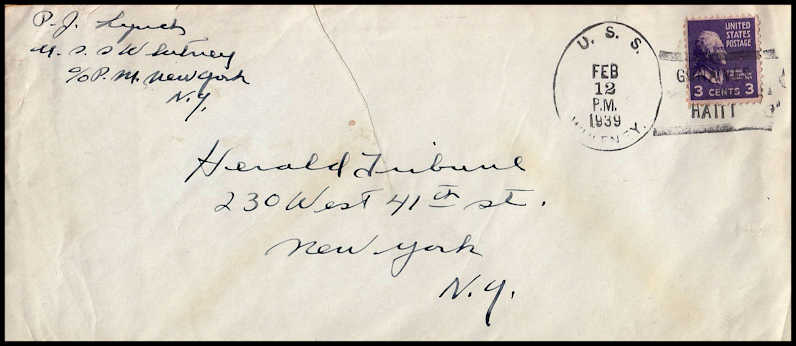 P. J. Lynch
U. S. S Whitney
c/o P. M. New York
N.Y.
U. S. S.
FEB
12
P.M.
1939
WHITNEY.
UNITED
STATES
POSTAGE
3 CENTS 3
HAITI
Herald Tribune
230 West 41th st.
New York
N.Y.